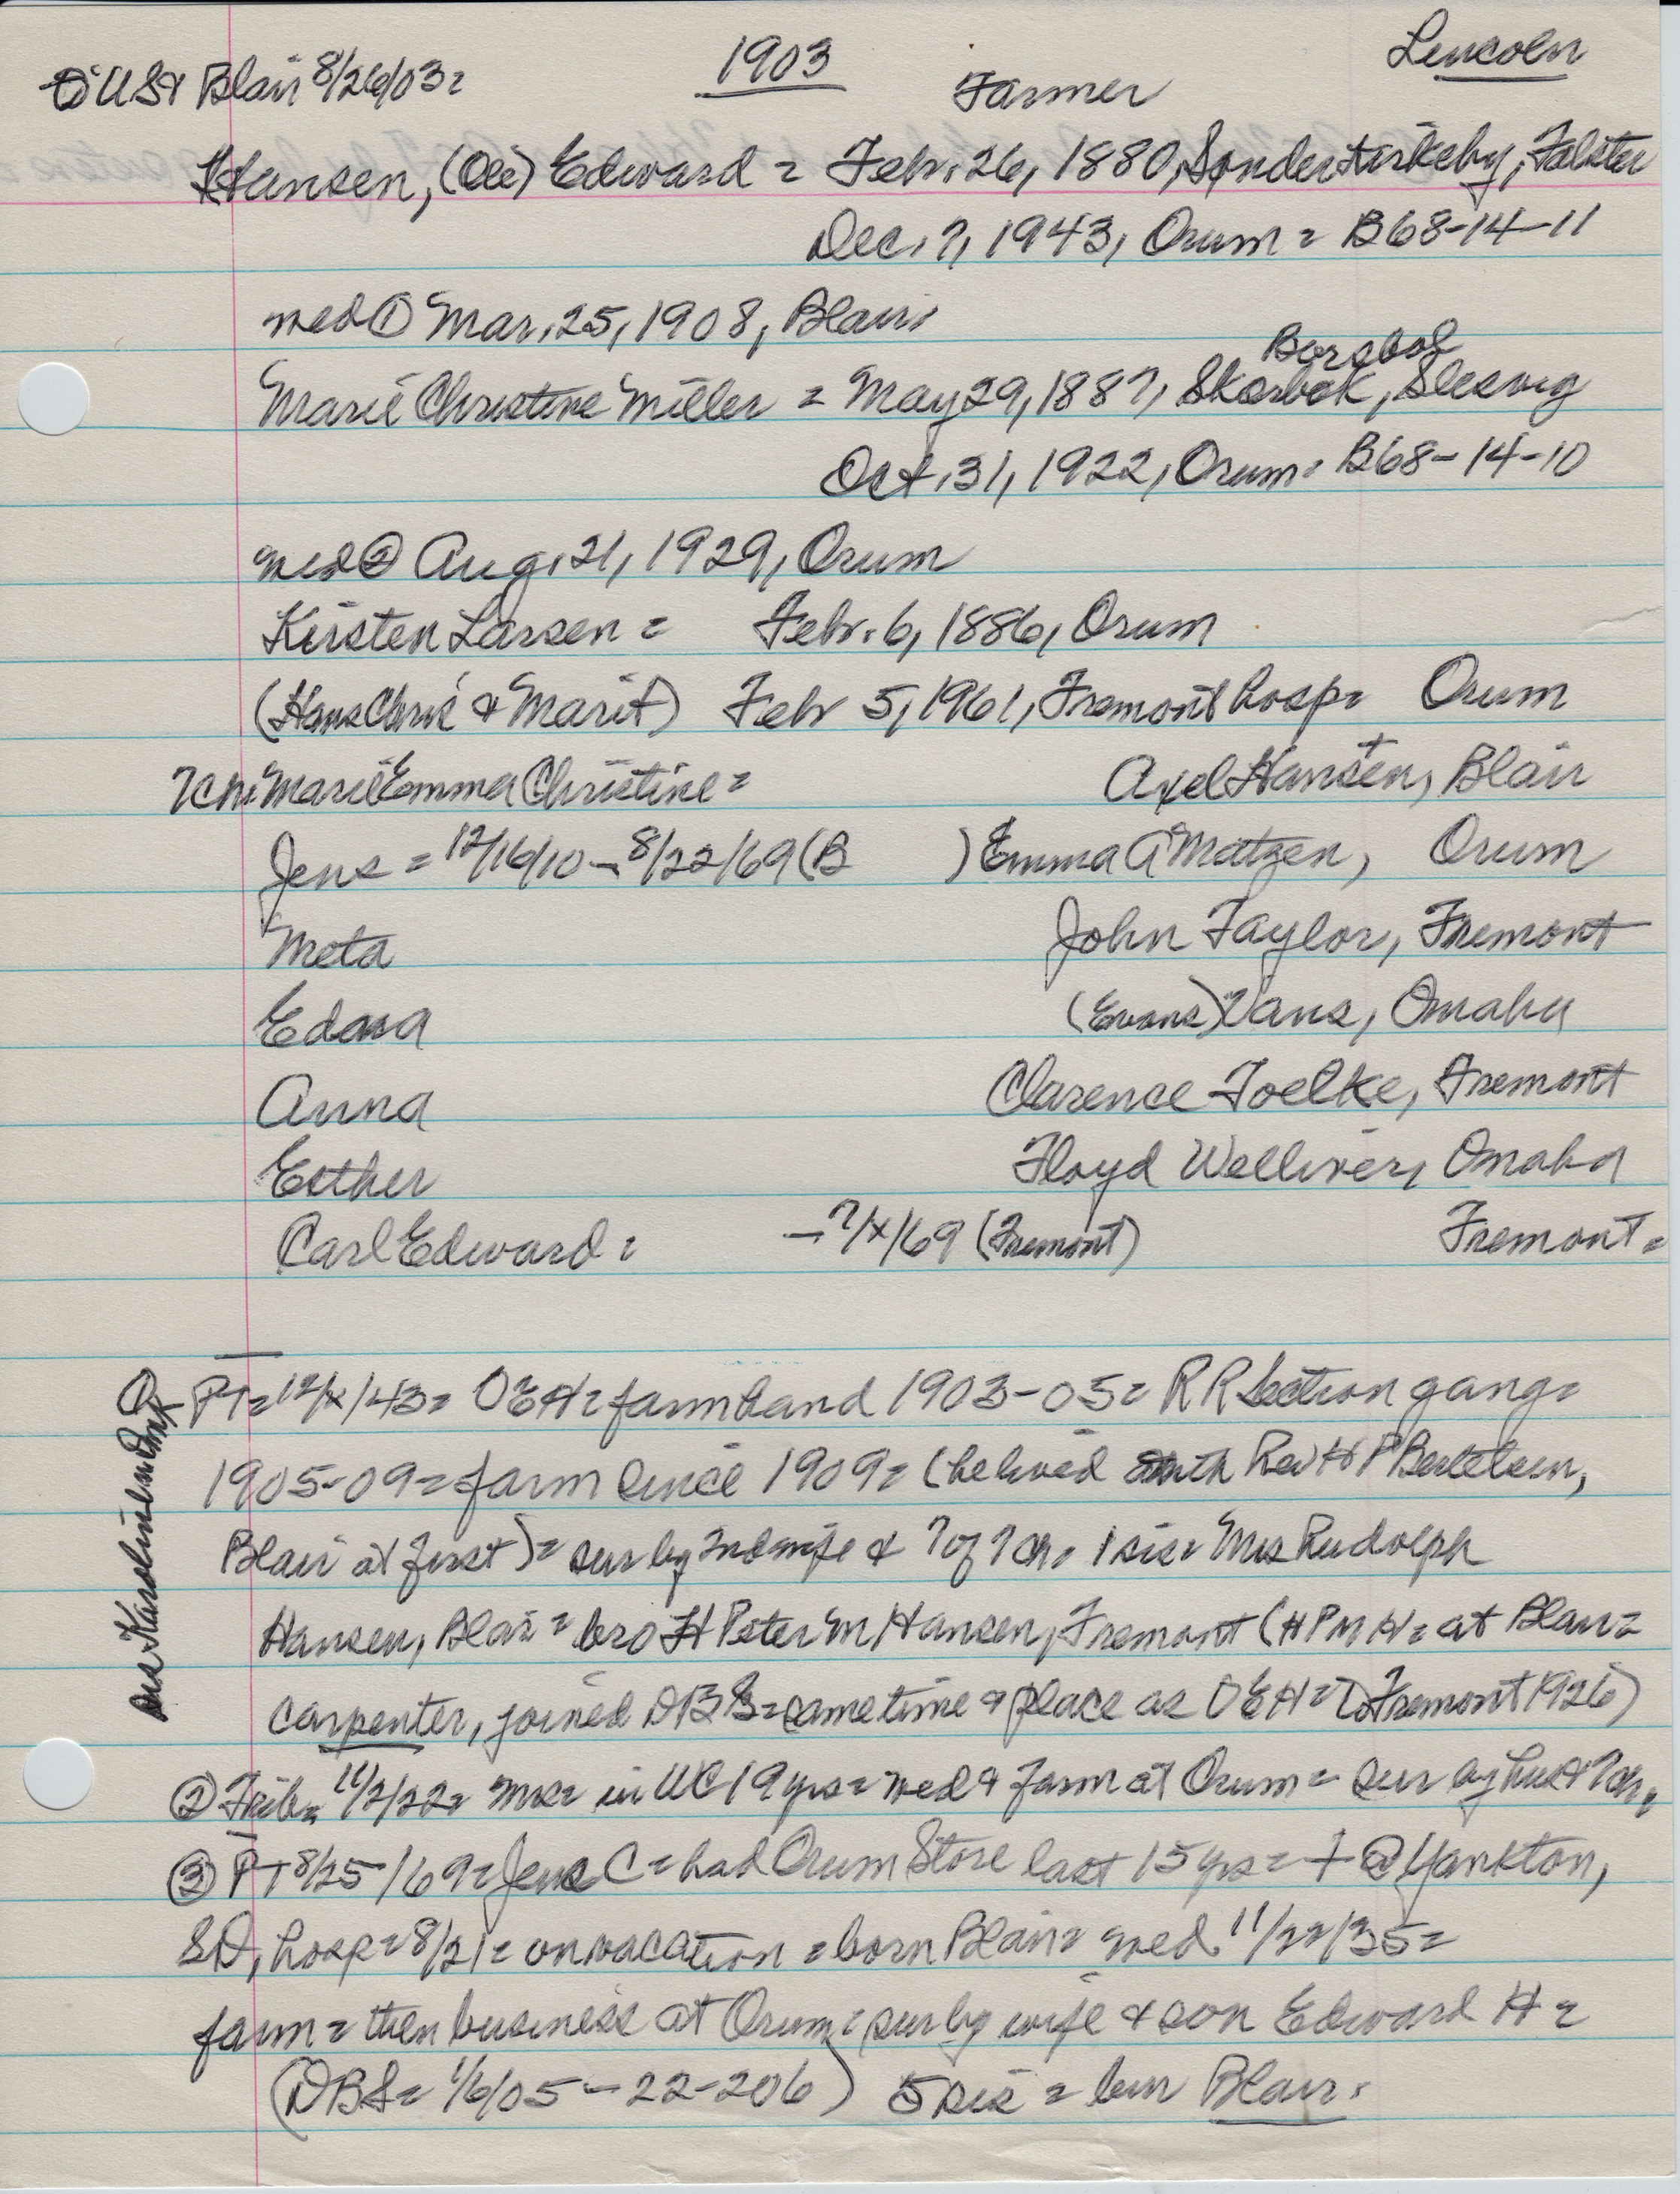 1903
Lincoln
to US & Blair 8/26/03=
Farmer
Hansen, (Ole) Edward = Febr. 26, 1880, Sønder Kirkeby, Falster
Dec. 7, 1943, Orum = B68-14-11
med ① Mar. 25, 1908, Blair,
Borgbøl
Marie Christine Miller = May 29, 1887, Skærbæk, Slesvig
Oct. 31, 1922, Orum = B68-14-10
med ② Aug. 21, 1929, Orum
Kirsten Larsen = Febr. 6, 1886, Orum
(Hans Chris & Marit) Febr 5, 1961, Fremont hosp = Orum
7 ch: Marie Emma Christine = Axel Hansen, Blair
Jens = 12/16/10 – 8/22/69 (B ) Emma A Matzen, Orum
Meta John Taylor, Fremont
Edna (Evans) Vans, Omaha
Anna Clarence Toelke, Fremont
Esther Floyd Welliver, Omaha
Carl Edward = – 7/x/69 (Fremont) Fremont =
① PT = 12/x/43 = OEH = farmhand 1903-05 = RR Section gang =
1905-09 = farm since 1909 = (he lived with Rev H P Bertelsen,
Blair at first) = sur by 2nd wife & 7 of 7 ch. 1 sis = Mrs Rudolph
Hansen, Blair = bro H Peter M Hansen, Fremont (HPMH = at Blair =
carpenter, joined DBS = same time & place as OEH = Fremont 1926)
② Trib = 11/2/22 = Mrs = in US 19 yrs = med & farm at Orum = sur by hus & 7 ch.
③ PT 8/25/69 = Jens C = had Orum Store last 15 yrs = + @ Yankton,
SD, hosp = 8/21 = on vacation = born Blair = med. 11/22/35 =
farm = then business at Orum = sur by wife & son Edward H =
(DBS = 1/6/05 – 22-206) 5 sis = bur Blair.